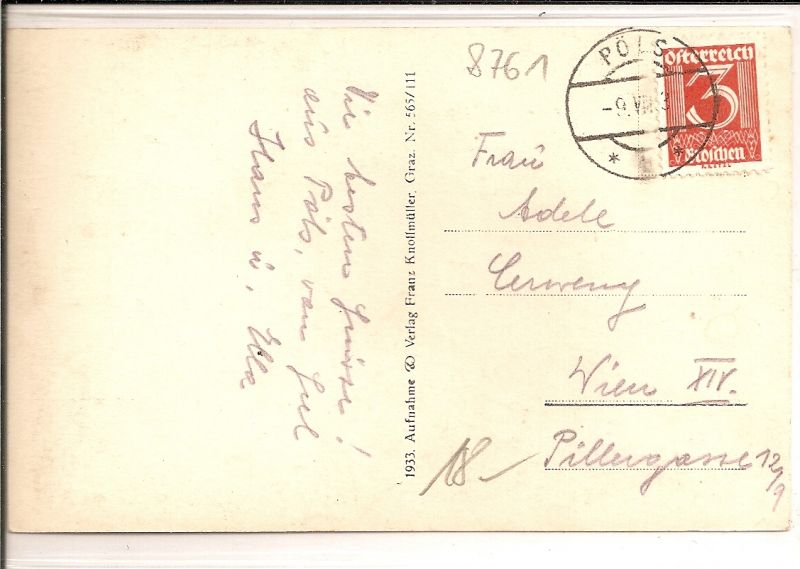 8761
PÖLS
Österreich
3
Groschen
Frau
Adele
Cerweny
Wien XIV.
Pillergasse 12/9
18.-
1933. Aufnahme Verlag Franz Knollmüller, Graz. Nr. 565/111
Die besten Grüsse!
aus Pöls, von
Hans u. Ella